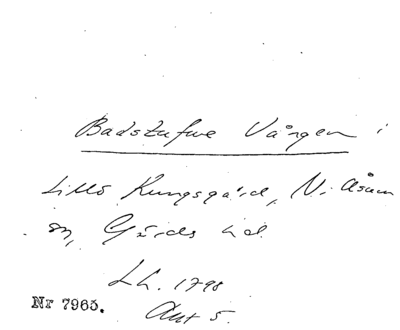 Badstufwe Vången i
Lillö Kungsgård, N. Åsum
sn, Gärds hd
Lh. 1798
Akt 5.
Nr 7965.